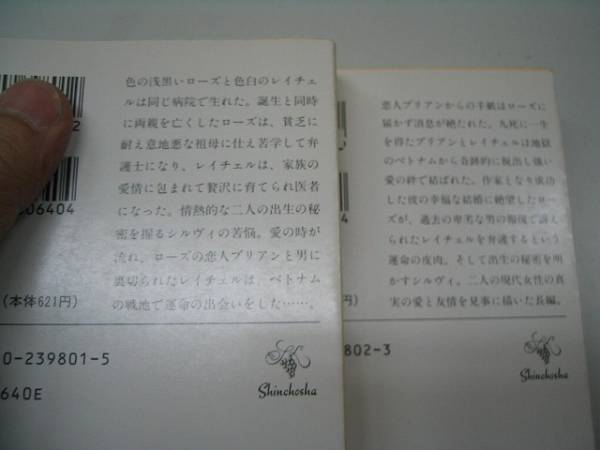 色の浅黒いローズと色白のレイチェ
ルは同じ病院で生れた。誕生と同時
に両親を亡くしたローズは、貧乏に
耐え意地悪な祖母に仕え苦学して弁
護士になり、レイチェルは、家族の
愛情に包まれて贅沢に育てられ医者
になった。情熱的な二人の出生の秘
密を握るシルヴィの苦悩。愛の時が
流れ、ローズの恋人ブリアンと男に
裏切られたレイチェルは、ベトナム
の戦地で運命の出会いをした……。
2
06404
(本体621円)
0-239801-5
640E
Shinchosha
恋人ブリアンからの手紙はローズに
届かず消息が絶たれた。九死に一生
を得たブリアンとレイチェルは地獄
のベトナムから奇跡的に脱出し強い
愛の絆で結ばれた。作家となり成功
した彼の幸福な結婚に絶望したロー
ズが、過去の卑劣な男の報復で訴え
られたレイチェルを弁護するという
運命の皮肉。そして出生の秘密を明
かすシルヴィ。二人の現代女性の真
実の愛と友情を見事に描いた長編。
円)
802-3
Shinchosha